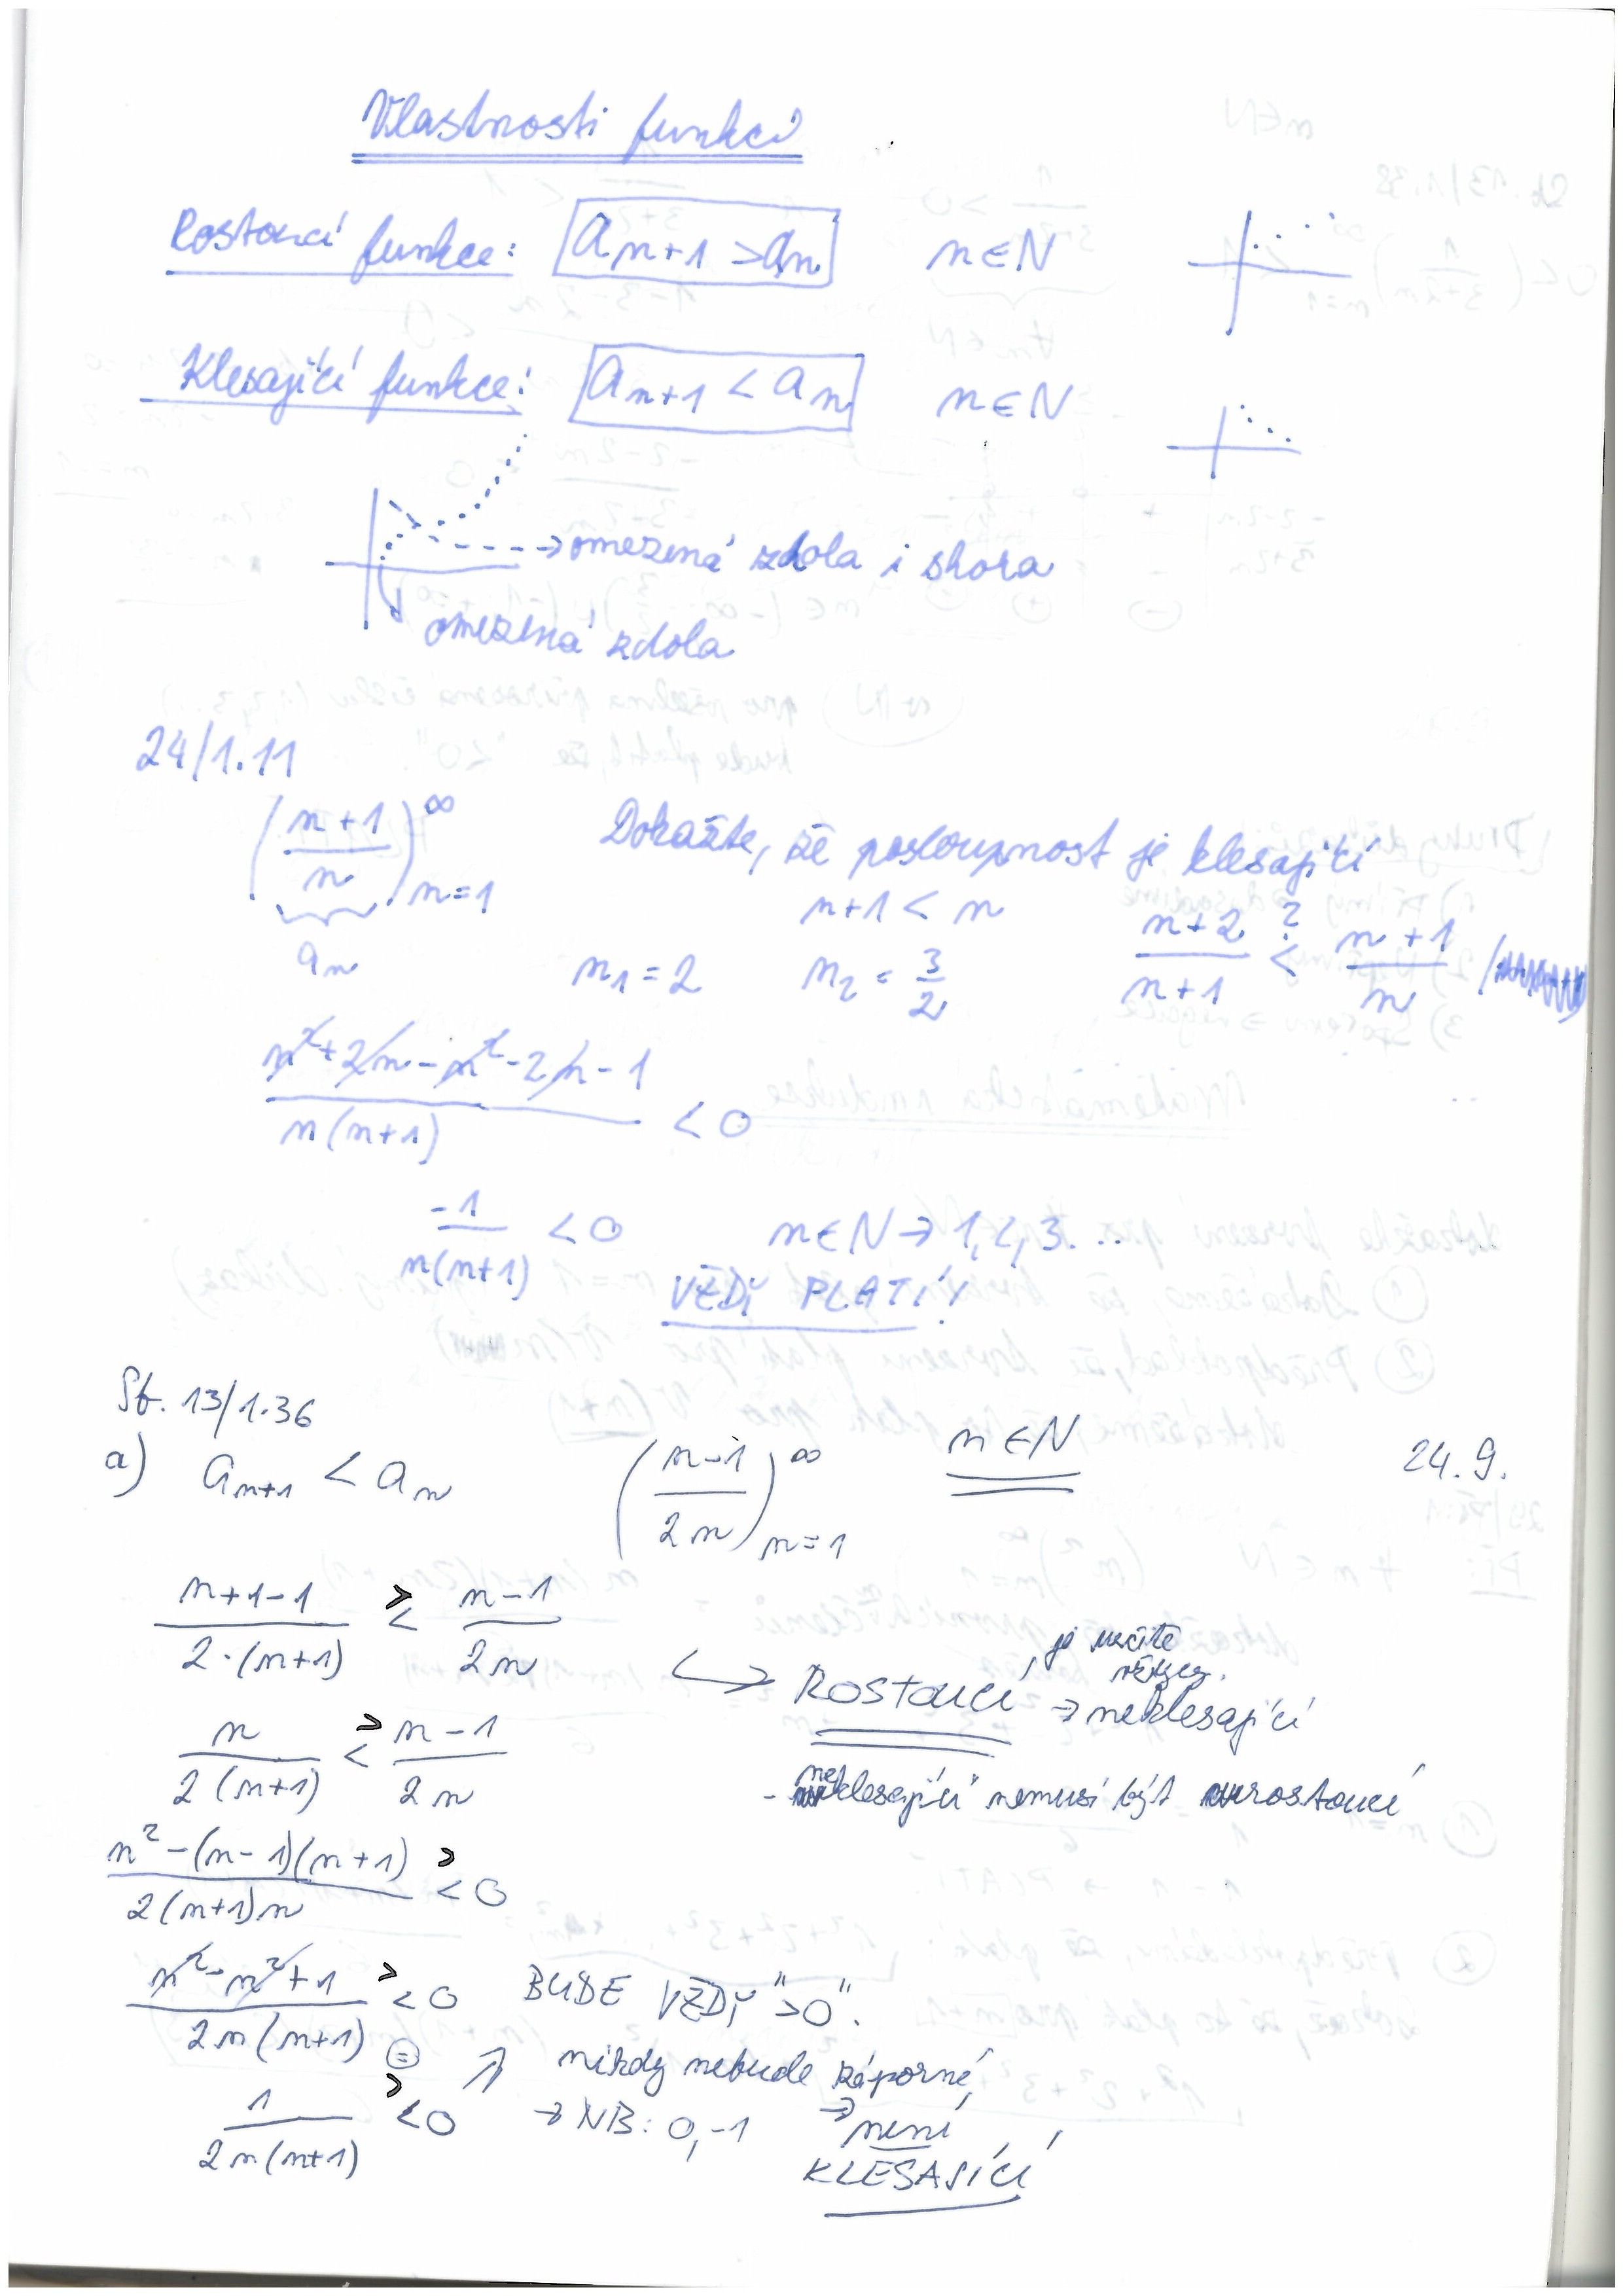 Vlastnosti funkcí
Rostoucí funkce: a_{n+1} > a_n n∈N
Klesající funkce: a_{n+1} < a_n n∈N
→ omezená zdola i shora
omezená zdola
24/1.11
((n+1)/n)_{n=1}^∞ Dokažte, že posloupnost je klesající
a_n
n+1 < n
n_1 = 2 n_2 = 3/2 (n+2)/(n+1) <? (n+1)/n /
(n²+2n-n²-2n-1)/(n(n+1)) < 0
-1/(n(n+1)) < 0 n∈N → 1, 2, 3...
VŽDY PLATÍ!
St. 13/1.36
a) a_{n+1} < a_n ((n-1)/(2n))_{n=1}^∞ n∈N 24.9.
(n+1-1)/(2·(n+1)) >< (n-1)/(2n)
→ ROSTOUCÍ, je určitě → neklesající
n/(2(n+1)) >< (n-1)/(2n)
- neklesající nemusí být rostoucí
(n²-(n-1)(n+1))/(2(n+1)n) >< 0
(n²-n²+1)/(2n(n+1)) >< 0 BUDE VŽDY ">0".
⊜ ↗ nikdy nebude záporné,
1/(2n(n+1)) >< 0 → NB: 0, -1 → není
KLESAJÍCÍ